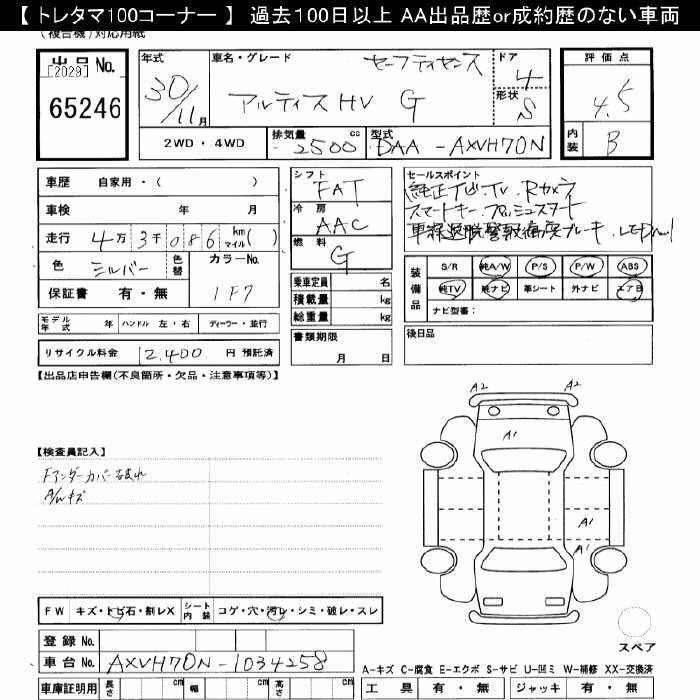 【 トレタマ100コーナー 】 過去100日以上 AA出品歴or成約歴のない車両
(複合機)対応用紙
出品 No.
[2029]
65246
年式
30/11月
車名・グレード
セーフティセンス
アルティス HV G
ドア
4
形状
S
評価点
4.5
内装
B
2WD・4WD
排気量
2500 cc
型式
DAA-AXVH70N
車歴 自家用・( )
車検 年 月
走行 4万3千086 km(マイル)
色 シルバー
色替
カラーNo.
1F7
保証書 有・無
シフト
FAT
冷房
AAC
燃料
G
乗車定員 名
積載量 kg
総重量 kg
セールスポイント
純正ナビ・TV・Rカメラ
スマートキー・プッシュスタート
車線逸脱警報・衝突ブレーキ・LED
装備品
S/R 純A/W P/S P/W ABS
純TV 純ナビ 革シート 外ナビ エアB
ナビ型番:
モデル年式 年 ハンドル 左・右 ディーラー・並行
リサイクル料金 12,400 円 預託済
書類期限
月 日
後日品
【出品店申告欄(不良箇所・欠品・注意事項等)】
A2 A2
A1
A1
A1
【検査員記入】
Fアンダーカバー
A/Wキズ
FW キズ・トビ石・割レX
シート内装 コゲ・穴・汚レ・シミ・破レ・スレ
登録 No.
車台 No. AXVH70N-1034258
車庫証明用 長さ cm 幅 cm 高さ cm
スペア
A-キズ C-腐食 E-エクボ S-サビ U-凹ミ W-補修 XX-交換済
工具 有・無 ジャッキ 有・無